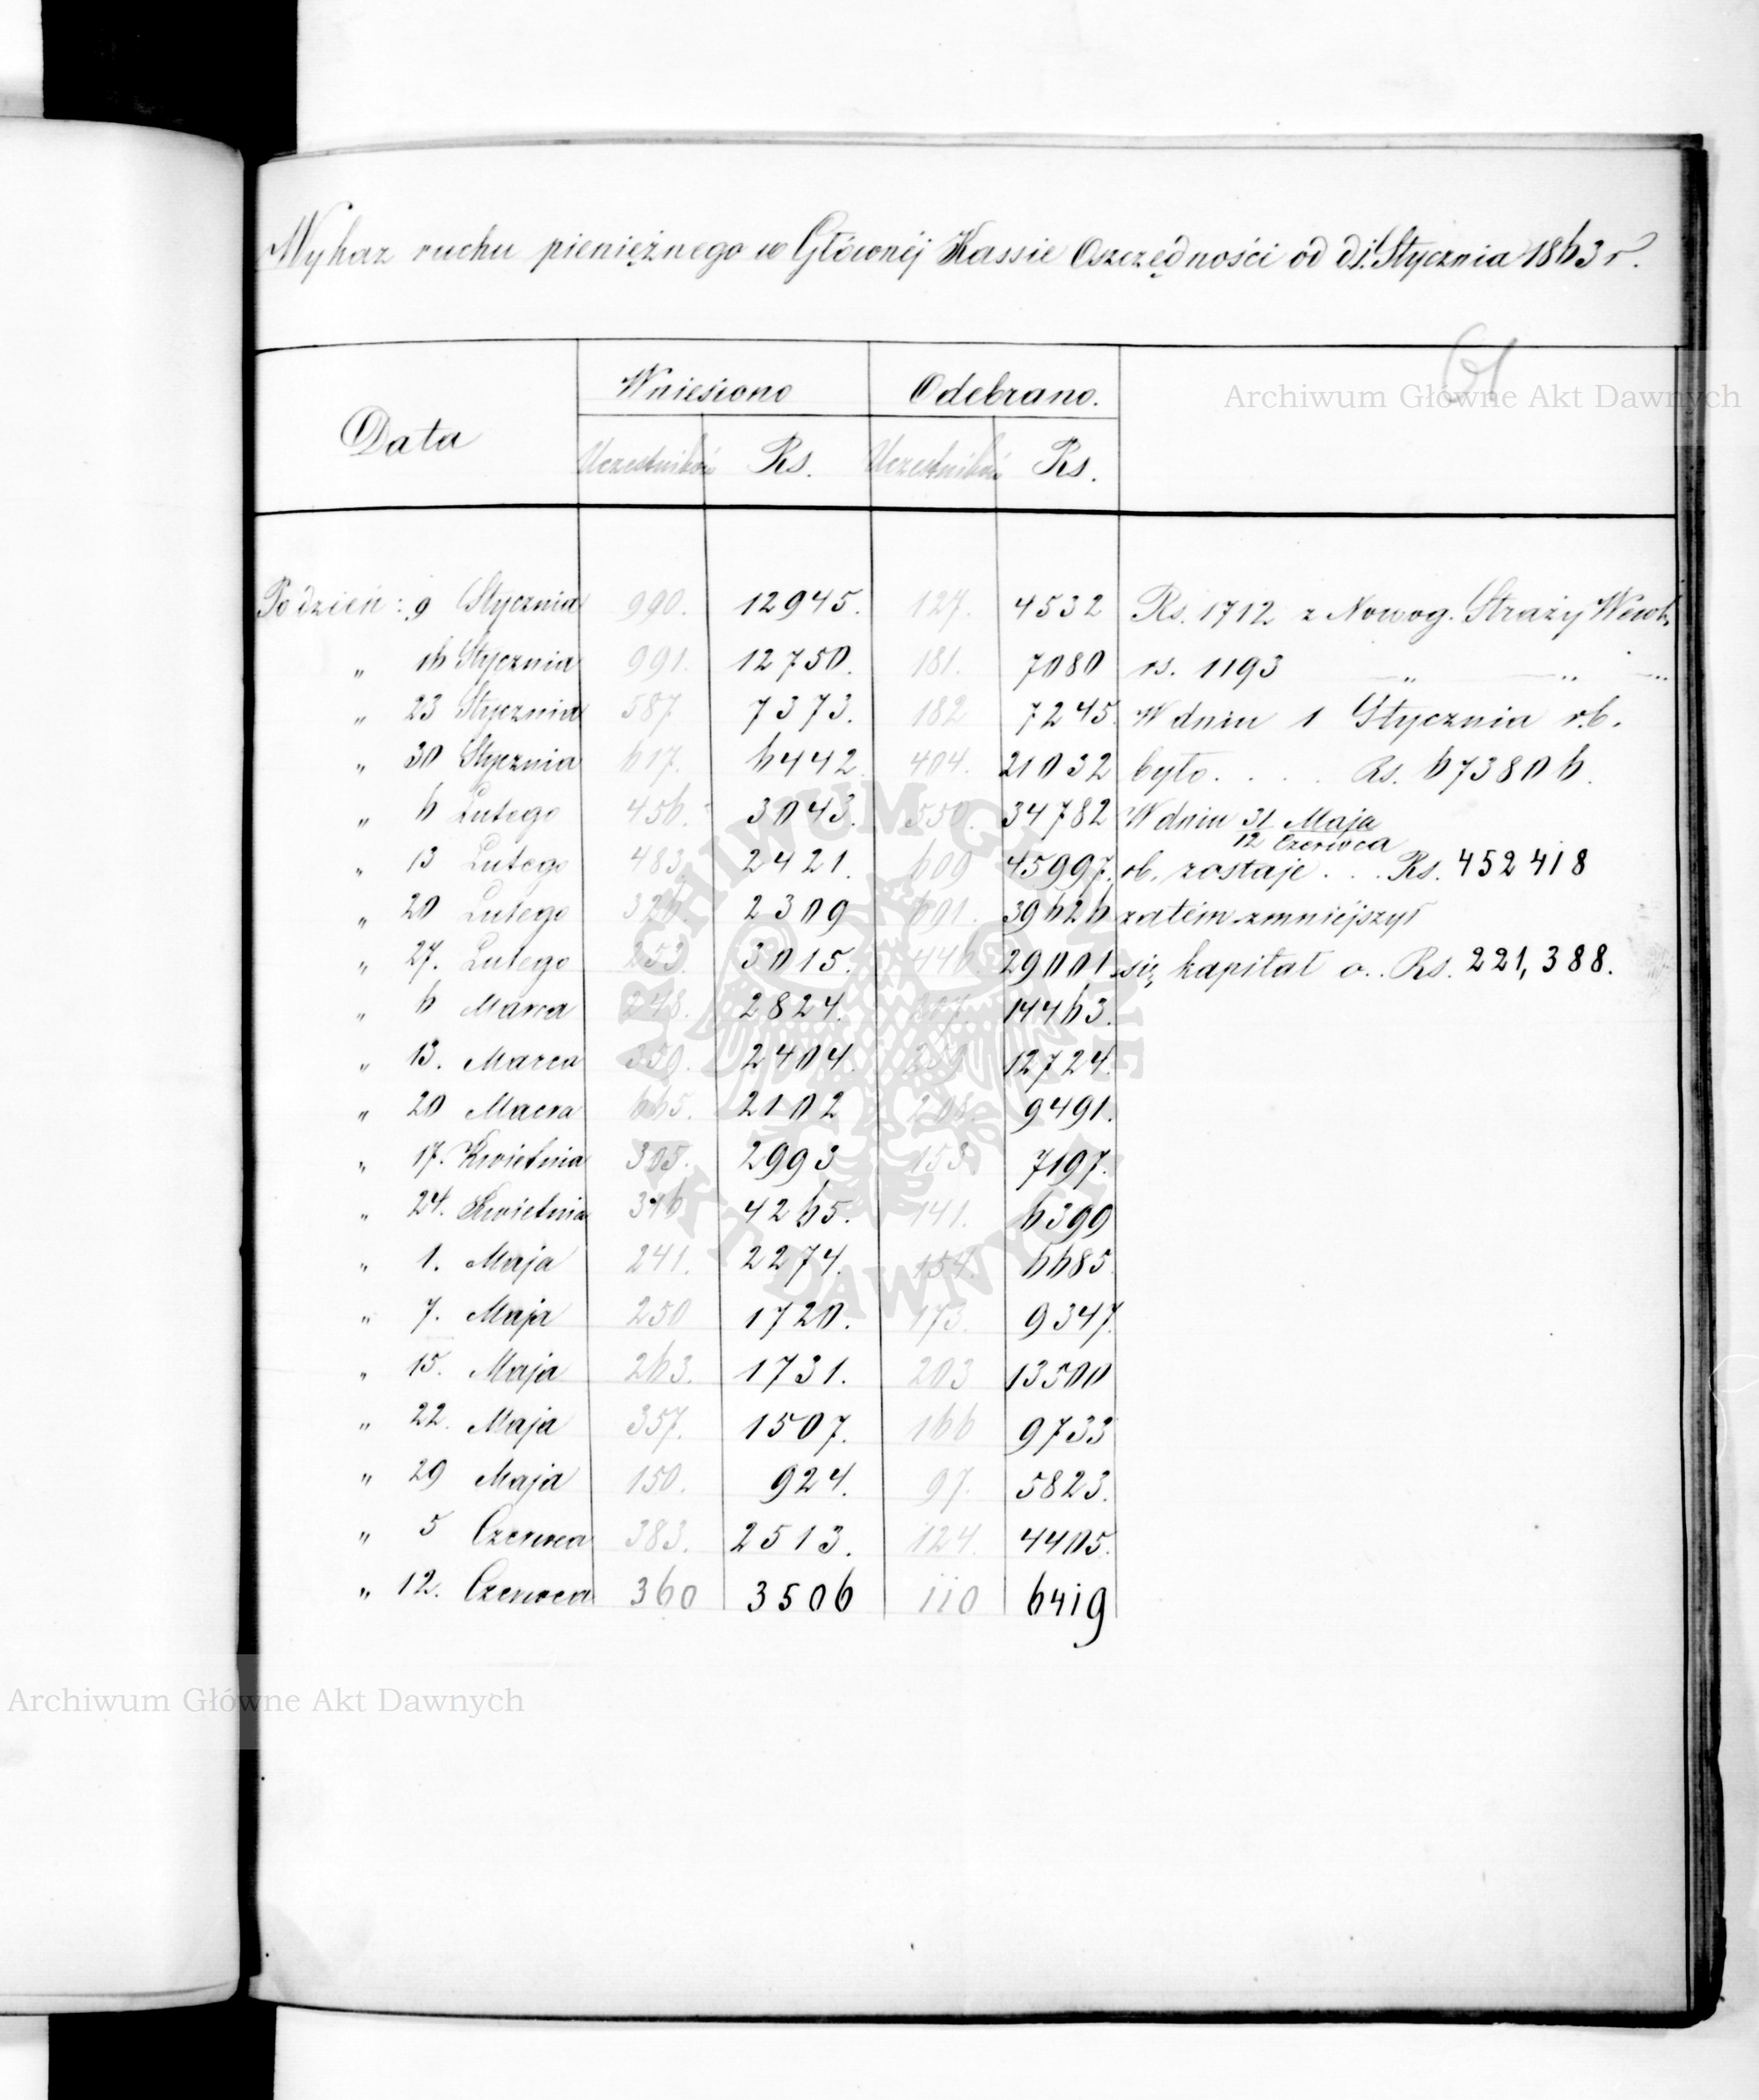 Wykaz ruchu pieniężnego w Głównéj Kassie Oszczędności od d. 1. Stycznia 1863 r.
61
Archiwum Główne Akt Dawnych
Data Wniesiono Odebrano.
Uczestników Rs. Uczestników Rs.
Po dzień: 9 Stycznia 990. 12945. 127. 4532 Rs. 1712 z Nowog. Straży
„ 16 Stycznia 991. 12750. 181. 7080 rs. 1193 — „ — „ — „
„ 23 Stycznia 587 7373. 182 7245. W dniu 1 Stycznia r.b.
„ 30 Stycznia 617. 6442 404. 21032 było . . . . Rs. 673806.
„ 6 Lutego 456. 3043. 550. 34782 W dniu 31 Maja
12 Czerwca
„ 13 Lutego 483. 2421. 609 45997. rb. zostaje . . . Rs. 452418
„ 20 Lutego 326. 2309 601. 39626 zatém zmniéjszył
„ 27. Lutego 253. 3015. 446. 29001 się kapitał o . . Rs. 221,388.
„ 6 Marca 248. 2824. 14463.
„ 13. Marca 350. 2404. 12724.
„ 20 Marca 665. 2102 9491.
„ 17. Kwietnia 305. 2993 153. 7197.
„ 24. Kwietnia 316 4265. 141. 6399
„ 1. Maja 241. 2274. 154. 6685
„ 7. Maja 250 1720. 173. 9347.
„ 15. Maja 263. 1731. 203 13500
„ 22. Maja 357. 1507. 166 9733
„ 29 Maja 150. 924. 97. 5823.
„ 5 Czerwca 383. 2513. 124. 4405.
„ 12. Czerwca 360 3506 110 6419
ARCHIWUM GŁÓWNE
AKT DAWNYCH
Archiwum Główne Akt Dawnych